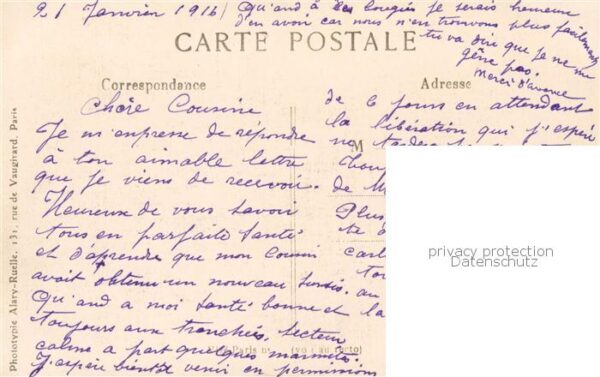 21 Janvier 1916 Quand à des bougies je serais heureuse
d'en avoir car nous n'en trouvons plus facilement
tu va dire que je ne me
gêne pas.
Merci d'avance
CARTE POSTALE
Correspondance
Adresse
Chère Cousine
Je m'empresse de répondre
à ton aimable lettre
que je viens de recevoir.
Heureuse de vous savoir
tous en parfaite santé
et d'apprendre que mon cousin
avait obtenu un nouveau sursis.
Quand a moi santé bonne et
toujours aux tranchées secteur
calme a part quelques marmites.
J'espère bientôt venir en permission
de 6 jours en attendant
la libération qui j'espère
ne
M
de M
Plus
ta
au
la
Paris
(vo au recto)
Phototypie Alary-Ruelle, 131, rue de Vaugirard, Paris
privacy protection
Datenschutz